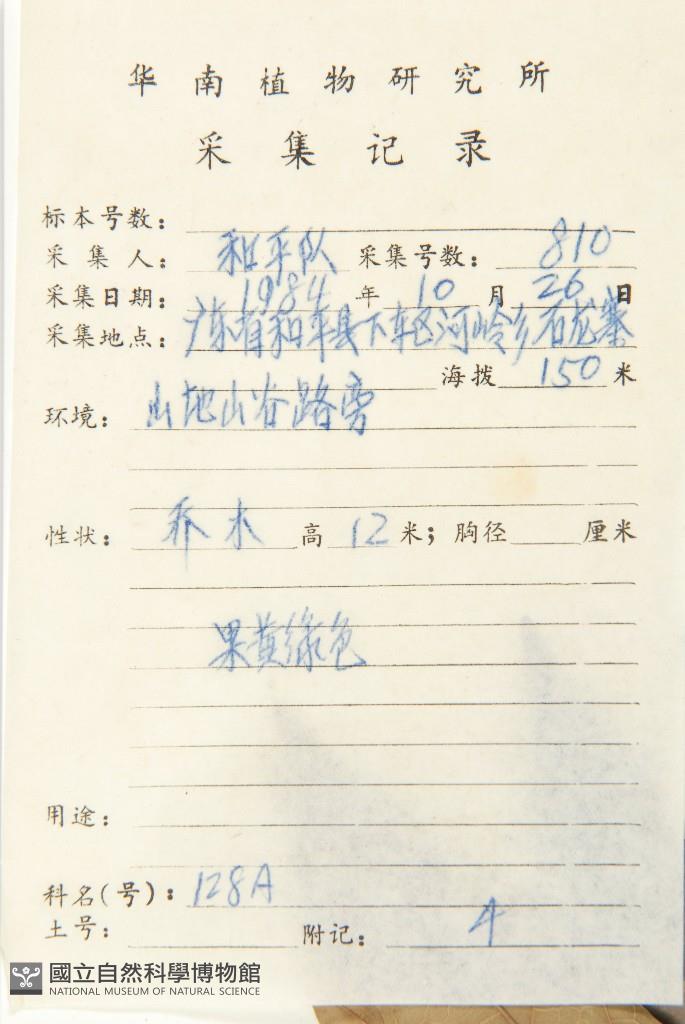 华南植物研究所
采集记录
标本号数：
采集人：和平队 采集号数：810
采集日期：1984年10月26日
采集地点：广东省和平县下车区河岭乡石龙寨
海拨150米
环境：山地山谷路旁
性状：乔木 高12米；胸径 厘米
果黄绿色
用途：
科名(号)：128A
土号： 附记：4
國立自然科學博物館
NATIONAL MUSEUM OF NATURAL SCIENCE